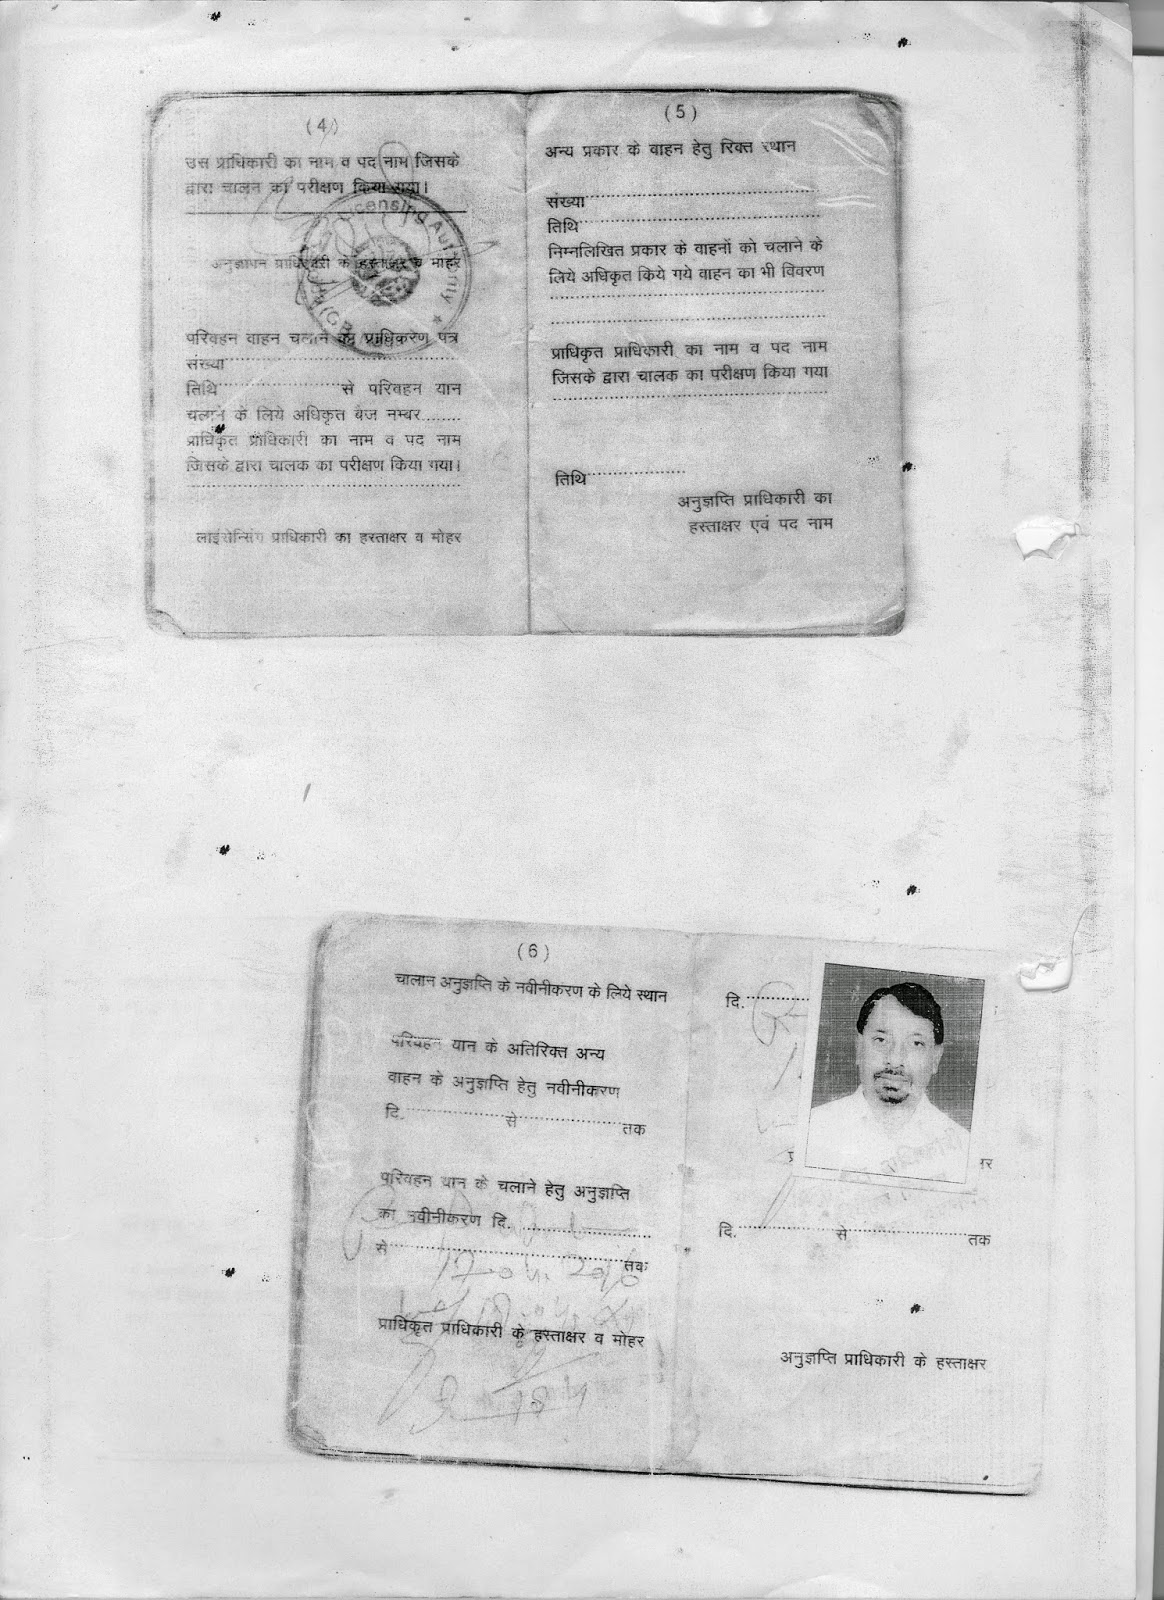 (4)
उस प्राधिकारी का नाम व पद नाम जिसके
द्वारा चालन का परीक्षण किया गया।
अनुज्ञापन प्राधिकारी के हस्ताक्षर व मोहर
censing Authority
परिवहन वाहन चलाने का प्राधिकरण पत्र
संख्या
तिथि से परिवहन यान
चलाने के लिये अधिकृत बैज नम्बर........
प्राधिकृत प्राधिकारी का नाम व पद नाम
जिसके द्वारा चालक का परीक्षण किया गया।
लाईसेन्सिंग प्राधिकारी का हस्ताक्षर व मोहर
(5)
अन्य प्रकार के वाहन हेतु रिक्त स्थान
संख्या
तिथि
निम्नलिखित प्रकार के वाहनों को चलाने के
लिये अधिकृत किये गये वाहन का भी विवरण
प्राधिकृत प्राधिकारी का नाम व पद नाम
जिसके द्वारा चालक का परीक्षण किया गया
तिथि
अनुज्ञप्ति प्राधिकारी का
हस्ताक्षर एवं पद नाम
(6)
चालान अनुज्ञप्ति के नवीनीकरण के लिये स्थान
परिवहन यान के अतिरिक्त अन्य
वाहन के अनुज्ञप्ति हेतु नवीनीकरण
दि. से तक
परिवहन यान के चलाने हेतु अनुज्ञप्ति
का नवीनीकरण दि.
से तक
प्राधिकृत प्राधिकारी के हस्ताक्षर व मोहर
दि.
दि. से तक
अनुज्ञप्ति प्राधिकारी के हस्ताक्षर